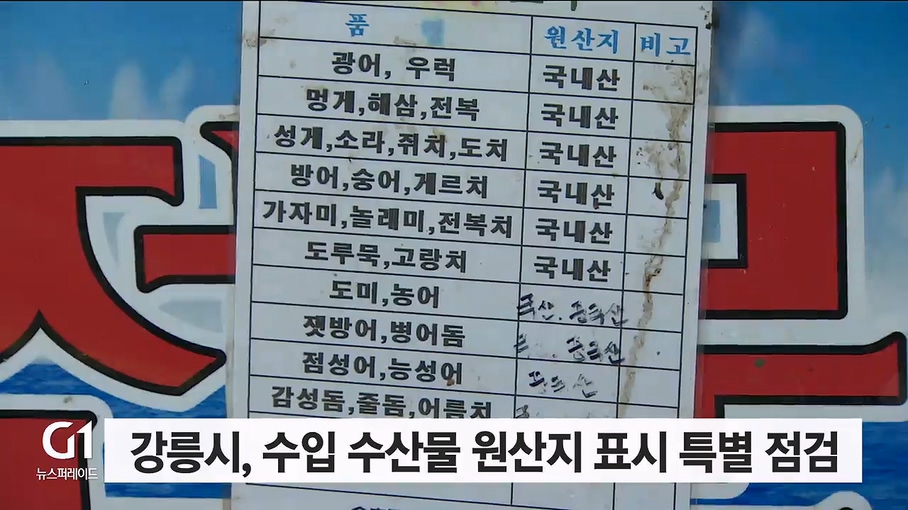 품 원산지 비고
광어, 우럭 국내산
멍게,해삼,전복 국내산
성게,소라,쥐치,도치 국내산
방어,숭어,게르치 국내산
가자미,놀래미,전복치 국내산
도루묵,고랑치 국내산
도미,농어
잿방어,병어돔 중국산
점성어,능성어 중국산
감성돔,줄돔,어름치
G1
뉴스퍼레이드
강릉시, 수입 수산물 원산지 표시 특별 점검